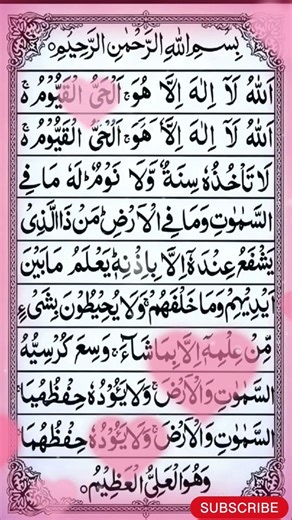 بِسْمِ اللهِ الرَّحْمٰنِ الرَّحِيْمِ
اَللهُ لَآ اِلٰهَ اِلَّا هُوَ ۚ اَلْحَىُّ الْقَيُّوْمُ ۚ
اَللهُ لَآ اِلٰهَ اِلَّا هُوَ ۚ اَلْحَىُّ الْقَيُّوْمُ ۚ
لَا تَاْخُذُهٗ سِنَةٌ وَّلَا نَوْمٌ ؕ لَهٗ مَا فِى
السَّمٰوٰتِ وَمَا فِى الْاَرْضِ ؕ مَنْ ذَا الَّذِىْ
يَشْفَعُ عِنْدَهٗٓ اِلَّا بِاِذْنِهٖ ؕ يَعْلَمُ مَا بَيْنَ
اَيْدِيْهِمْ وَمَا خَلْفَهُمْ ۚ وَلَا يُحِيْطُوْنَ بِشَىْءٍ
مِّنْ عِلْمِهٖٓ اِلَّا بِمَا شَآءَ ۚ وَسِعَ كُرْسِيُّهُ
السَّمٰوٰتِ وَالْاَرْضَ ۚ وَلَا يَـُٔوْدُهٗ حِفْظُهُمَا
السَّمٰوٰتِ وَالْاَرْضَ ۚ وَلَا يَـُٔوْدُهٗ حِفْظُهُمَا
وَهُوَ الْعَلِىُّ الْعَظِيْمُ
SUBSCRIBE